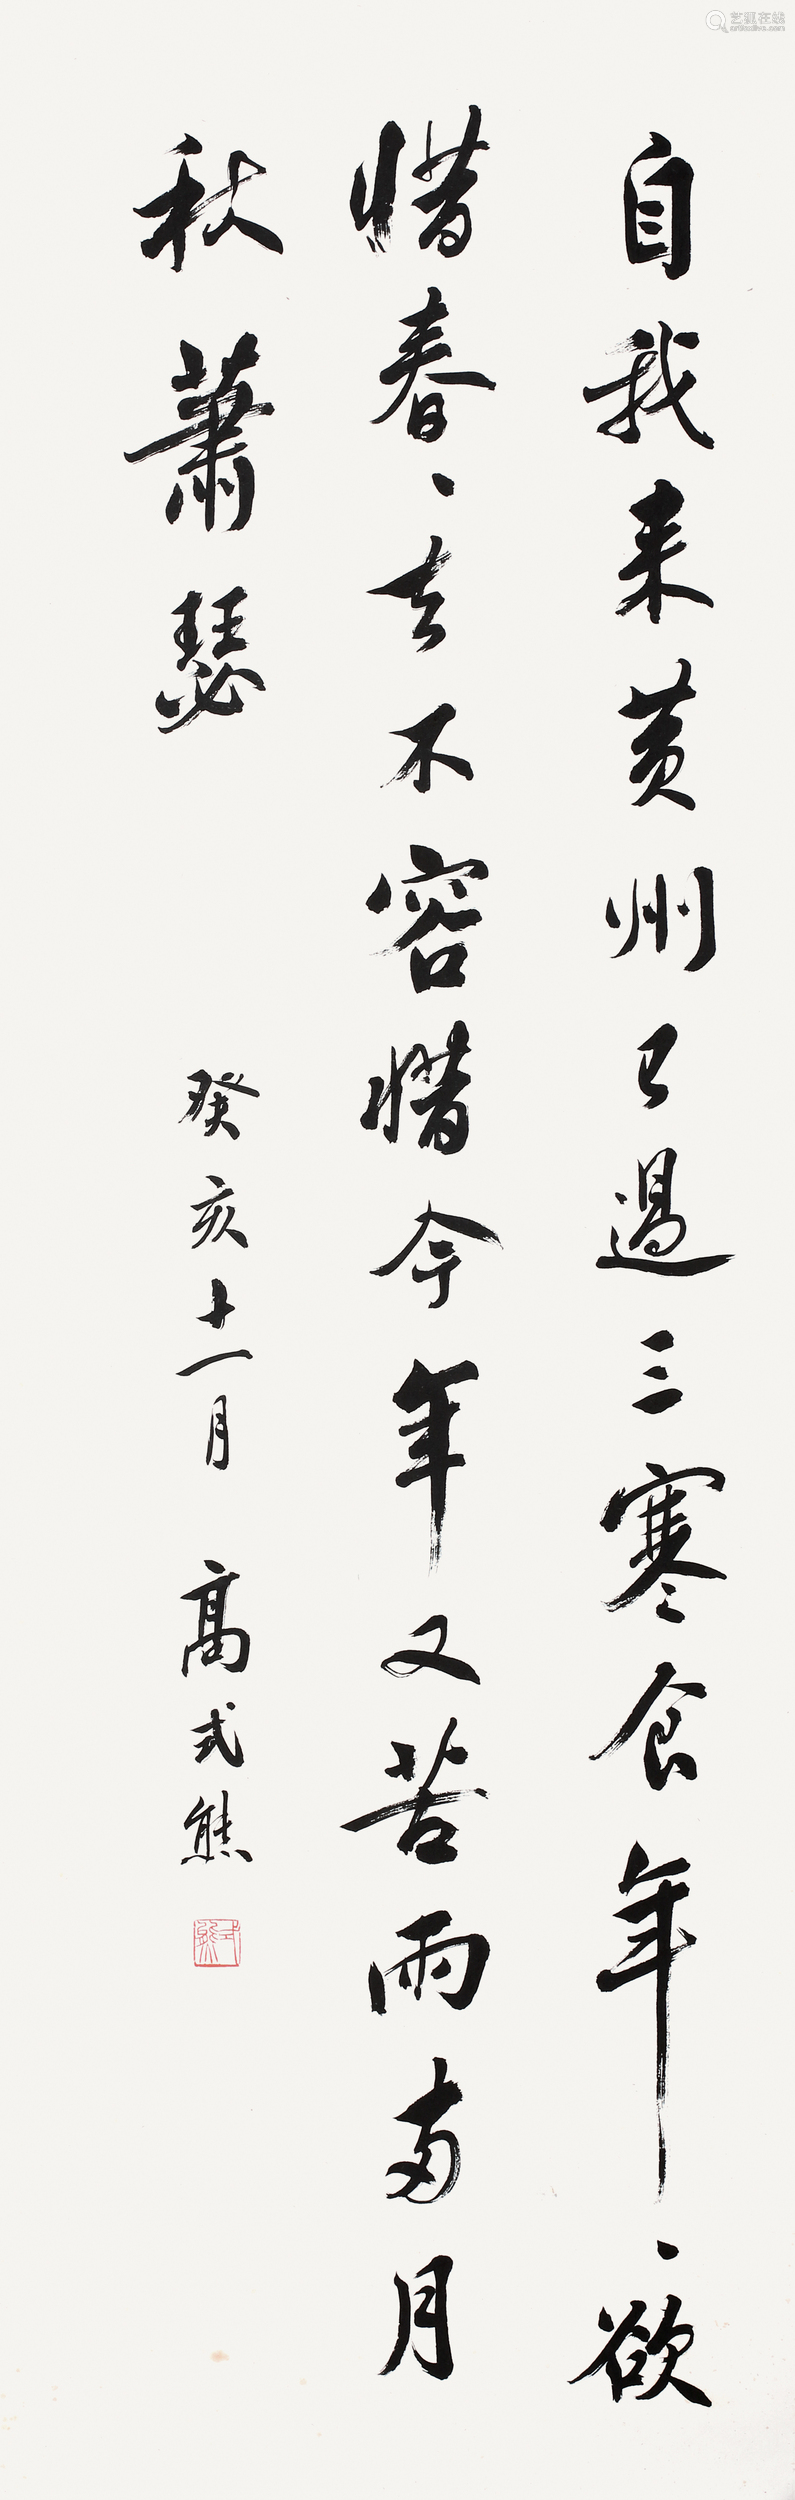 自我来黄州已过三寒食年、欲
惜春、去不容惜今年又苦雨两月
秋萧瑟
癸亥十一月 高式熊
式熊
艺狐在线
artfoxlive.com